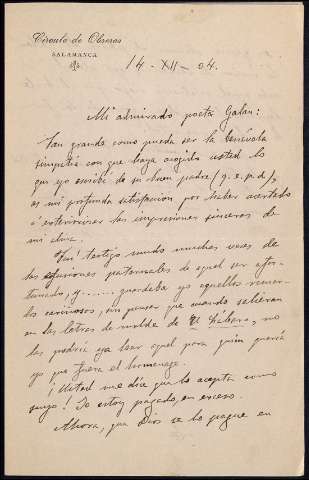 Círculo de Obreros
SALAMANCA
14-XII-04.
Mi admirado poeta Galán:
Tan grande como pueda ser la benévola
simpatía con que haya acogido usted lo
que yo escribí de su buen padre (q. e. p. d.),
es mi profunda satisfacción por haber acertado
á exteriorizar las impresiones sinceras de
mi alma.
Fuí testigo mudo muchas veces de
las efusiones paternales de aquel ser afor-
tunado, y...... guardaba yo aquellos recuer-
dos cariñosos, sin pensar que cuando salieran
en las letras de molde de El Lábaro, no
las podría ya leer aquel para quien quería
yo que fuera el homenaje.
¡Usted me dice que lo acepta como
suyo! Yo estoy pagado, en exceso.
Ahora, que Dios se lo pague en